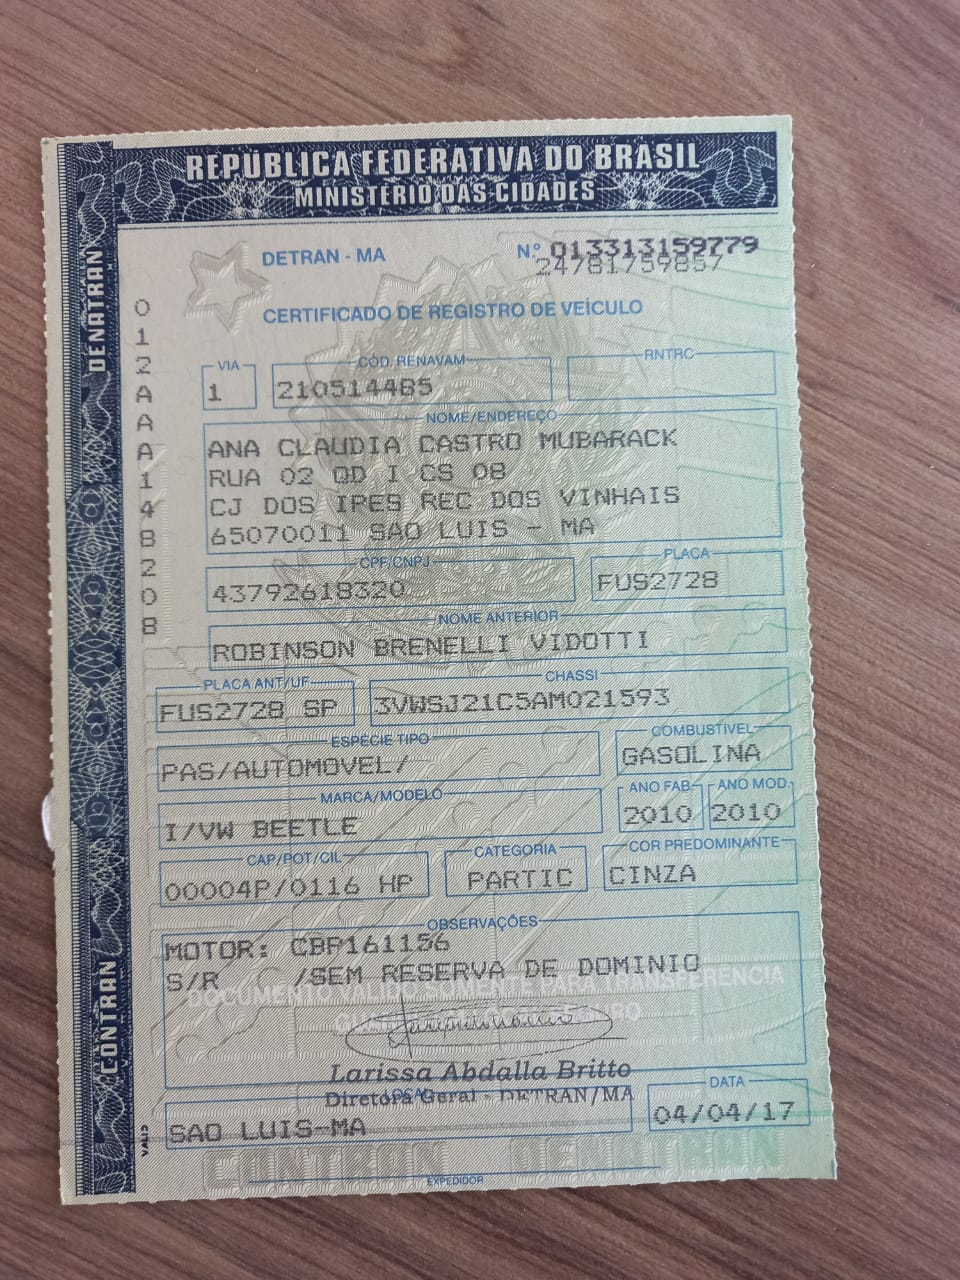 REPÚBLICA FEDERATIVA DO BRASIL
MINISTÉRIO DAS CIDADES
DENATRAN
CONTRAN
DETRAN - MA
Nº 013313159779
24781759857
CERTIFICADO DE REGISTRO DE VEÍCULO
012AAA14B20B
VIA
1
CÓD. RENAVAM
210514485
RNTRC
NOME/ENDEREÇO
ANA CLAUDIA CASTRO MUBARACK
RUA 02 QD I CS 08
CJ DOS IPES REC DOS VINHAIS
65070011 SAO LUIS - MA
CPF/CNPJ
43792618320
PLACA
FUS2728
NOME ANTERIOR
ROBINSON BRENELLI VIDOTTI
PLACA ANT/UF
FUS2728 SP
CHASSI
3VWSJ21C5AM021593
ESPÉCIE TIPO
PAS/AUTOMOVEL/
COMBUSTÍVEL
GASOLINA
MARCA/MODELO
I/VW BEETLE
ANO FAB.
2010
ANO MOD.
2010
CAP/POT/CIL
00004P/0116 HP
CATEGORIA
PARTIC
COR PREDOMINANTE
CINZA
OBSERVAÇÕES
MOTOR: CBP161156
S/R /SEM RESERVA DE DOMINIO
DOCUMENTO VÁLIDO SOMENTE PARA TRANSFERÊNCIA
Larissa Abdalla Britto
Diretora Geral - DETRAN/MA
LOCAL
SAO LUIS-MA
DATA
04/04/17
CONTRAN DENATRAN
EXPEDIDOR